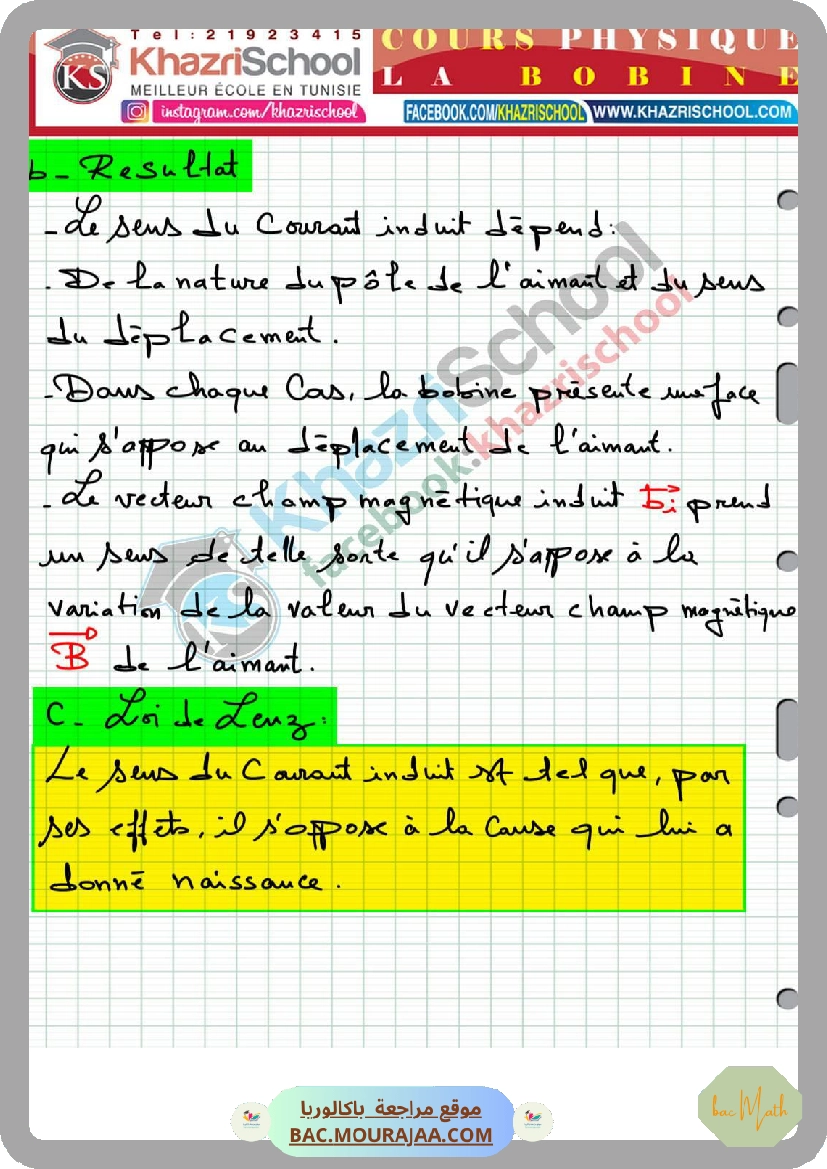 Tel:21923415
KhazriSchool
MEILLEUR ÉCOLE EN TUNISIE
instagram.com/khazrischool
KS
COURS PHYSIQUE
LA BOBINE
FACEBOOK.COM/KHAZRISCHOOL
WWW.KHAZRISCHOOL.COM
b- Resultat
- Le sens du Courant induit dépend:
. De la nature du pôle de l'aimant et du sens
du déplacement.
- Dans chaque Cas, la bobine présente une face
qui s'appose au déplacement de l'aimant.
- Le vecteur champ magnétique induit bi prend
un sens de telle sorte qu'il s'appose à la
variation de la valeur du vecteur champ magnétique
B de l'aimant.
C- Loi de Lenz:
Le sens du Courant induit est tel que, par
ses effets, il s'oppose à la Cause qui lui a
donné naissance.
KhazriSchool
facebook:khazrischool
KS
موقع مراجعة باكالوريا
BAC.MOURAJAA.COM
bac Math